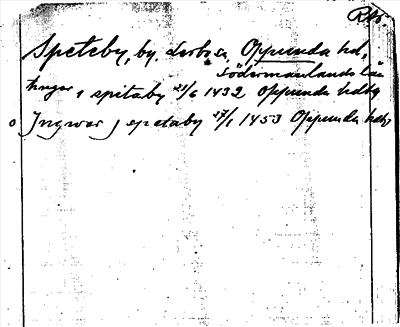 Speteby, by. Lerbo sn, Oppunda hd,
Södermanlands län
i spitaby 21/6 1432 Oppunda hdbg
o Jngwar j spetaby 27/1 1453 Oppunda hdbg